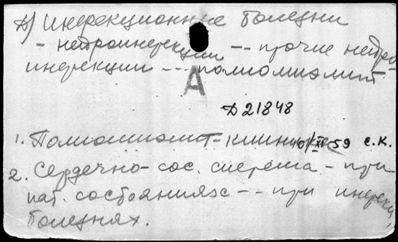 А) Инфекционные болезни
- нейроинфекции -- прочие нейро-
инфекции --- полиомиэлит.
А
Д 21848
1. Полиомиэлит - клиника 10/XII-59 С.К.
2. Сердечно-сос. система - при
пат. состояниях -- при инфекц.
болезнях.